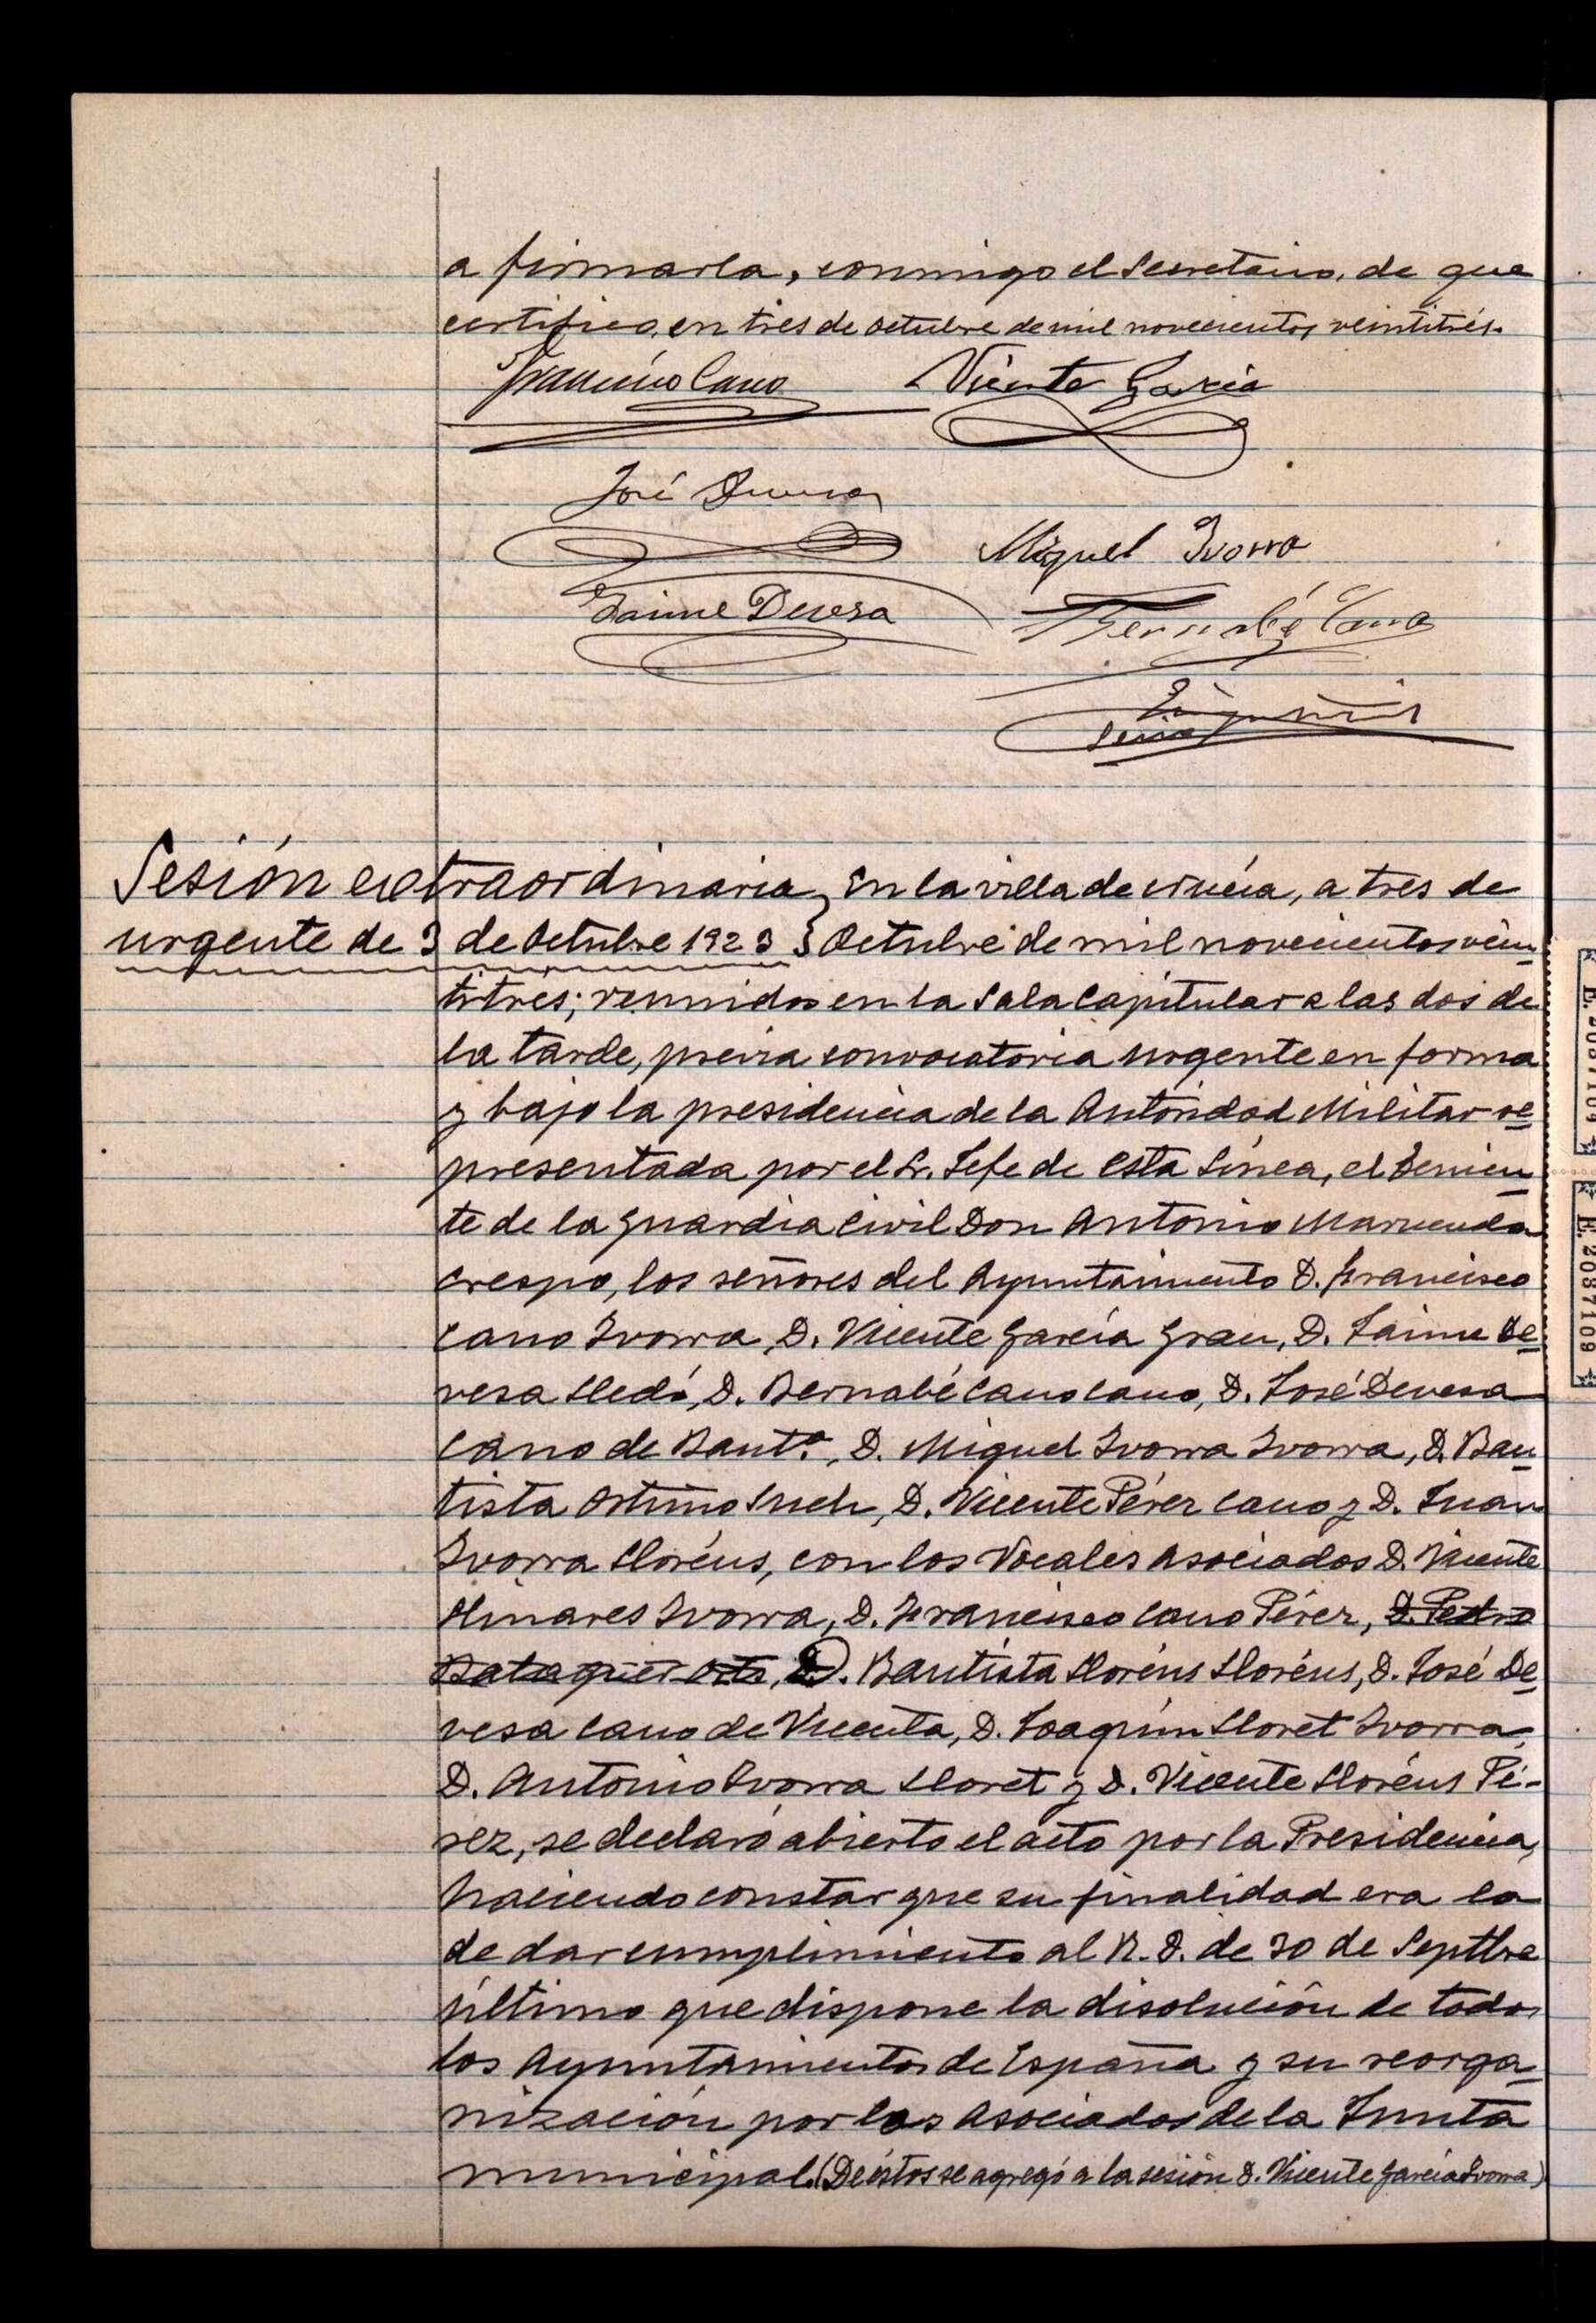 a firmarla, conmigo el Secretario, de que
certifico, en tres de Octubre de mil novecientos veintitrés.
Francisco Cano Vicente García
José Devesa
Miguel Ivorra
Jaime Devesa
Bernabé Cano
Sesión extraordinaria } En la villa de, a tres de
urgente de 3 de Octubre 1923 } Octubre de mil novecientos vein
titrés; reunidos en la Sala Capitular a las dos de
la tarde, previa convocatoria urgente en forma
y bajo la presidencia de la Autoridad Militar re
presentada por el Sr. Jefe de esta Línea, el Tenien
te de la Guardia Civil Don Antonio Maruenda
Crespo, los señores del Ayuntamiento D. Francisco
Cano Ivorra, D. Vicente García Grau, D. Jaime De
vesa Lledó, D. Bernabé Cano Cano, D. José Devesa
Cano de Bautª, D. Miguel Ivorra Ivorra, D. Bau
tista Ortuño Such, D. Vicente Pérez Cano y D. Juan
Ivorra Lloréns, con los Vocales asociados D. Vicente
Llinares Ivorra, D. Francisco Cano Pérez, D. Pedro
D. Bautista Lloréns Lloréns, D. José De
vesa Cano de Vicenta, D. Joaquín Lloret Ivorra,
D. Antonio Ivorra Lloret y D. Vicente Lloréns Pé-
rez, se declaró abierto el acto por la Presidencia,
haciendo constar que su finalidad era la
de dar cumplimiento al R. D. de 30 de Septbre
último que dispone la disolución de todos
los Ayuntamientos de España y su reorga
nización por los Asociados de la Junta
municipal. (De éstos se agregó a la sesión D. Vicente García Ivorra)
E. 2087109
E. 2087109